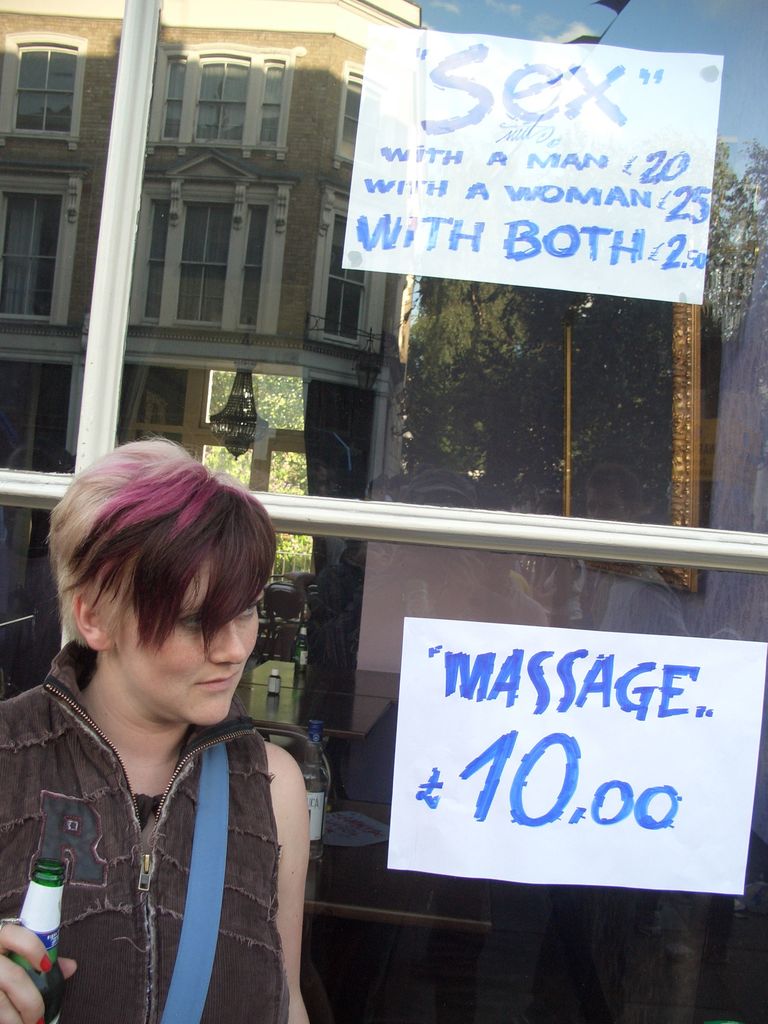 "Sex"
WITH A MAN £20
WITH A WOMAN £25
WITH BOTH £2.50
"MASSAGE"
£10.00
R